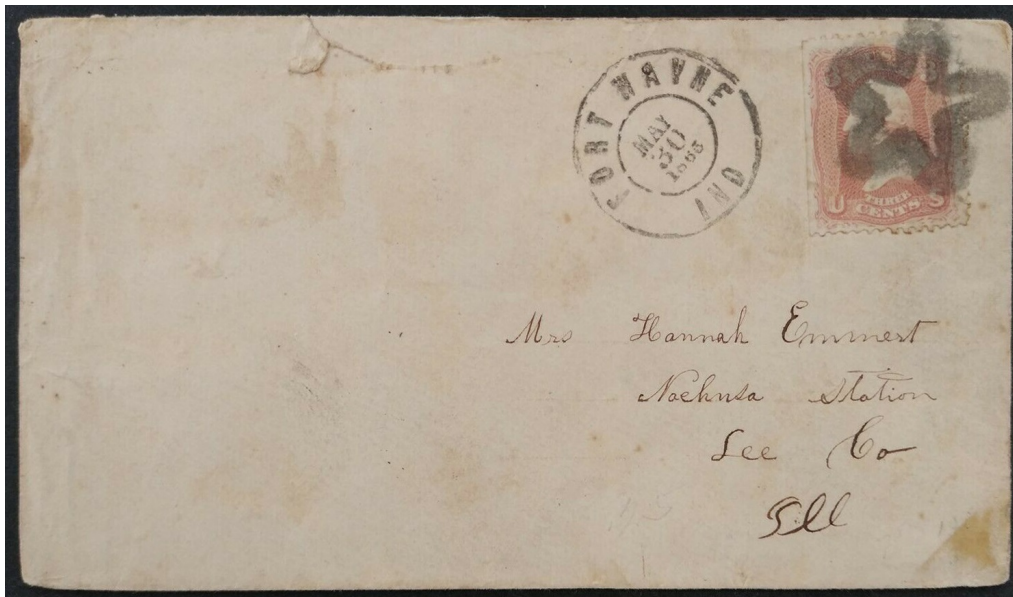 FORT WAYNE IND
MAY
30
1865
U THREE CENTS S
Mrs Hannah Emmert
Nachusa Station
Lee Co
Ill